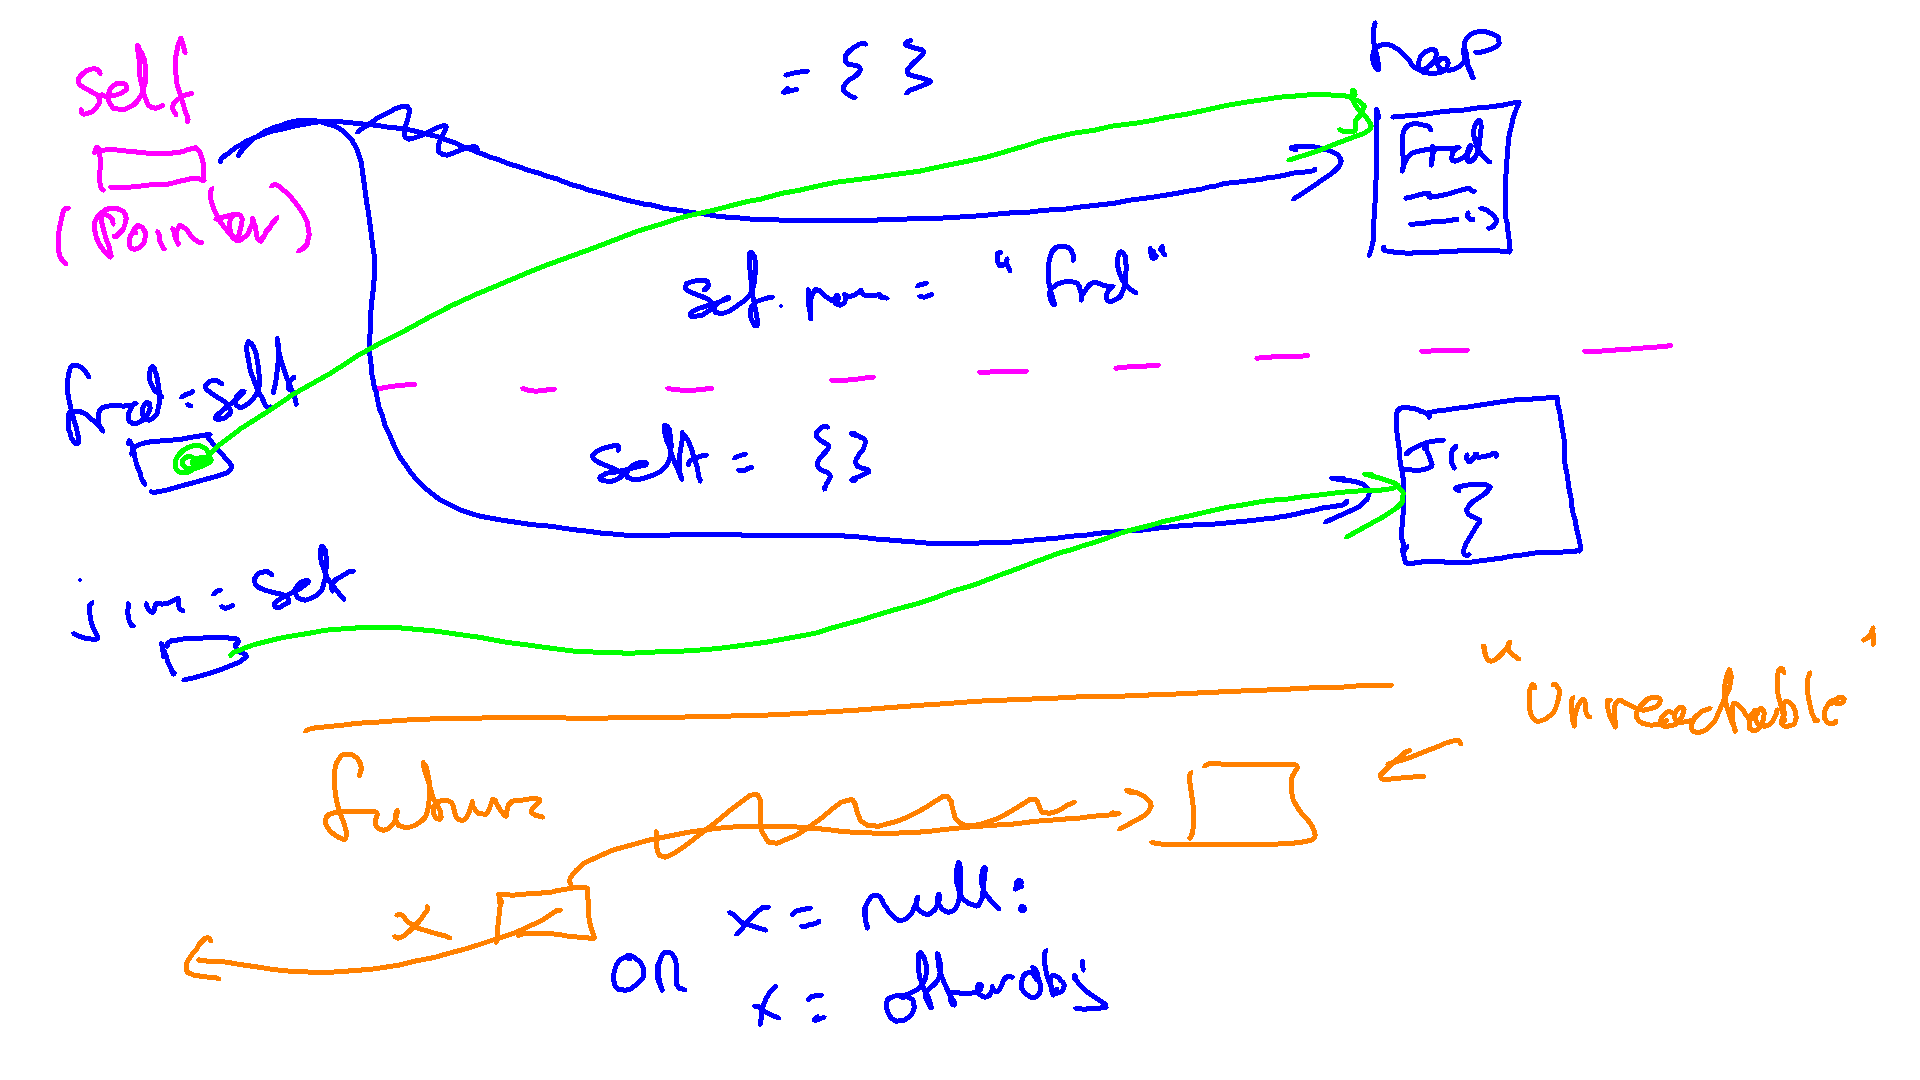 self
(Pointer)
= { }
heap
fred
self.name = "fred"
fred = self
self = { }
Jim
jim = self
"unreachable"
future
x
x = null;
OR
x = otherobj